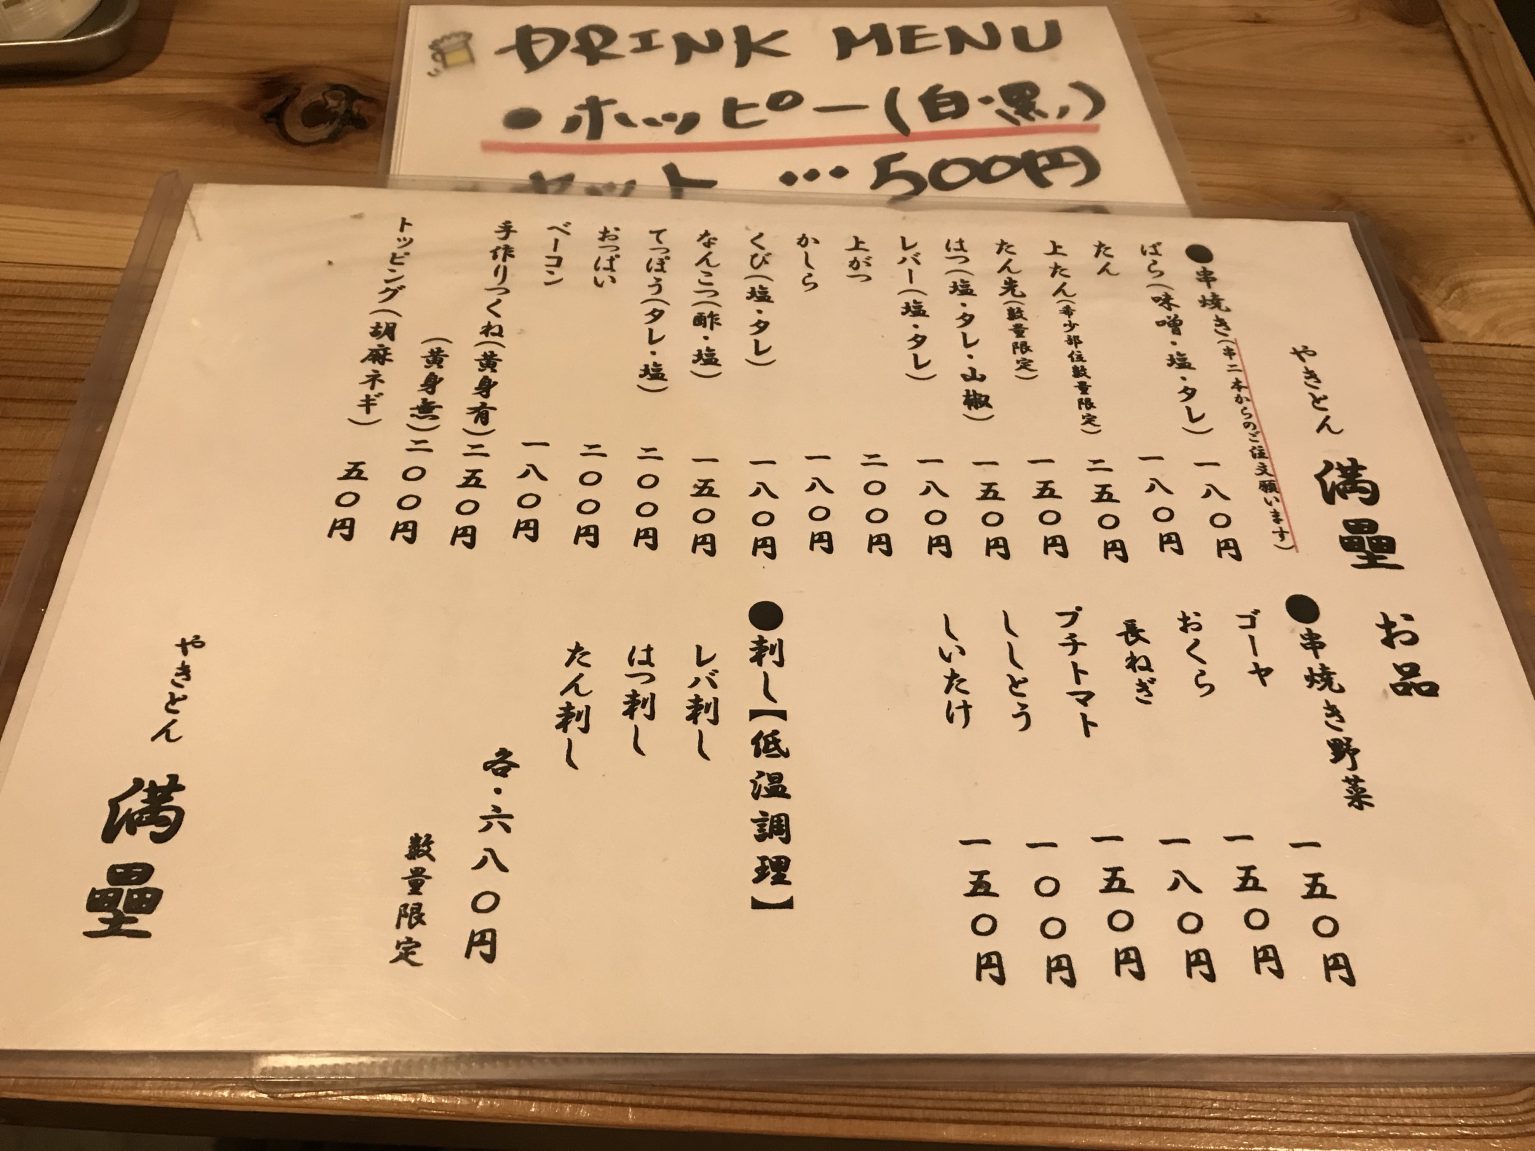 DRINK MENU
●ホッピー(白・黒)
セット…500円
やきとん 満壘 お品
●串焼き(串二本からのご注文願います)
ばら(味噌・塩・タレ) 一八〇円
たん 一八〇円
上たん(希少部位数量限定) 二五〇円
たん先(数量限定) 一五〇円
はつ(塩・タレ・山椒) 一五〇円
レバー(塩・タレ) 一八〇円
上がつ 二〇〇円
かしら 一八〇円
くび(塩・タレ) 一八〇円
なんこつ(酢・塩) 一五〇円
てっぽう(タレ・塩) 二〇〇円
おっぱい 二〇〇円
ベーコン 一八〇円
手作りつくね(黄身有) 二五〇円
(黄身無) 二〇〇円
トッピング(胡麻ネギ) 五〇円
●串焼き野菜
ゴーヤ 一五〇円
おくら 一五〇円
長ねぎ 一八〇円
プチトマト 一五〇円
ししとう 一〇〇円
しいたけ 一五〇円
●刺し【低温調理】
レバ刺し
はつ刺し
たん刺し
各・六八〇円
数量限定
やきとん 満壘